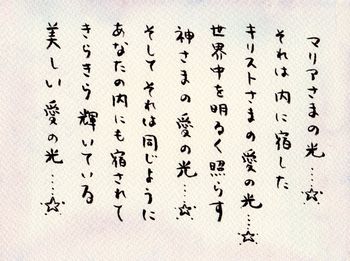 マリアさまの光……☆
それは内に宿した
キリストさまの愛の光……☆
世界中を明るく照らす
神さまの愛の光……☆
そして それは同じように
あなたの内にも宿されて
きらきら輝いている
美しい愛の光……☆